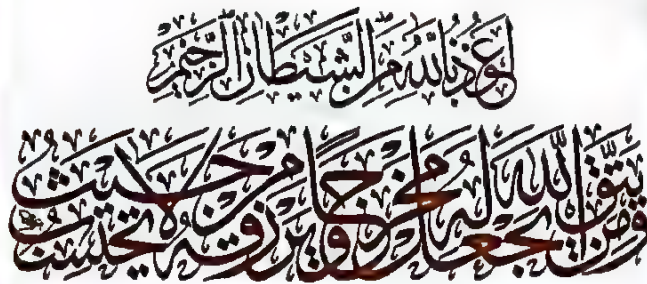 أعوذ بالله من الشيطان الرجيم
ومن يتق الله يجعل له مخرجا ويرزقه من حيث لا يحتسب